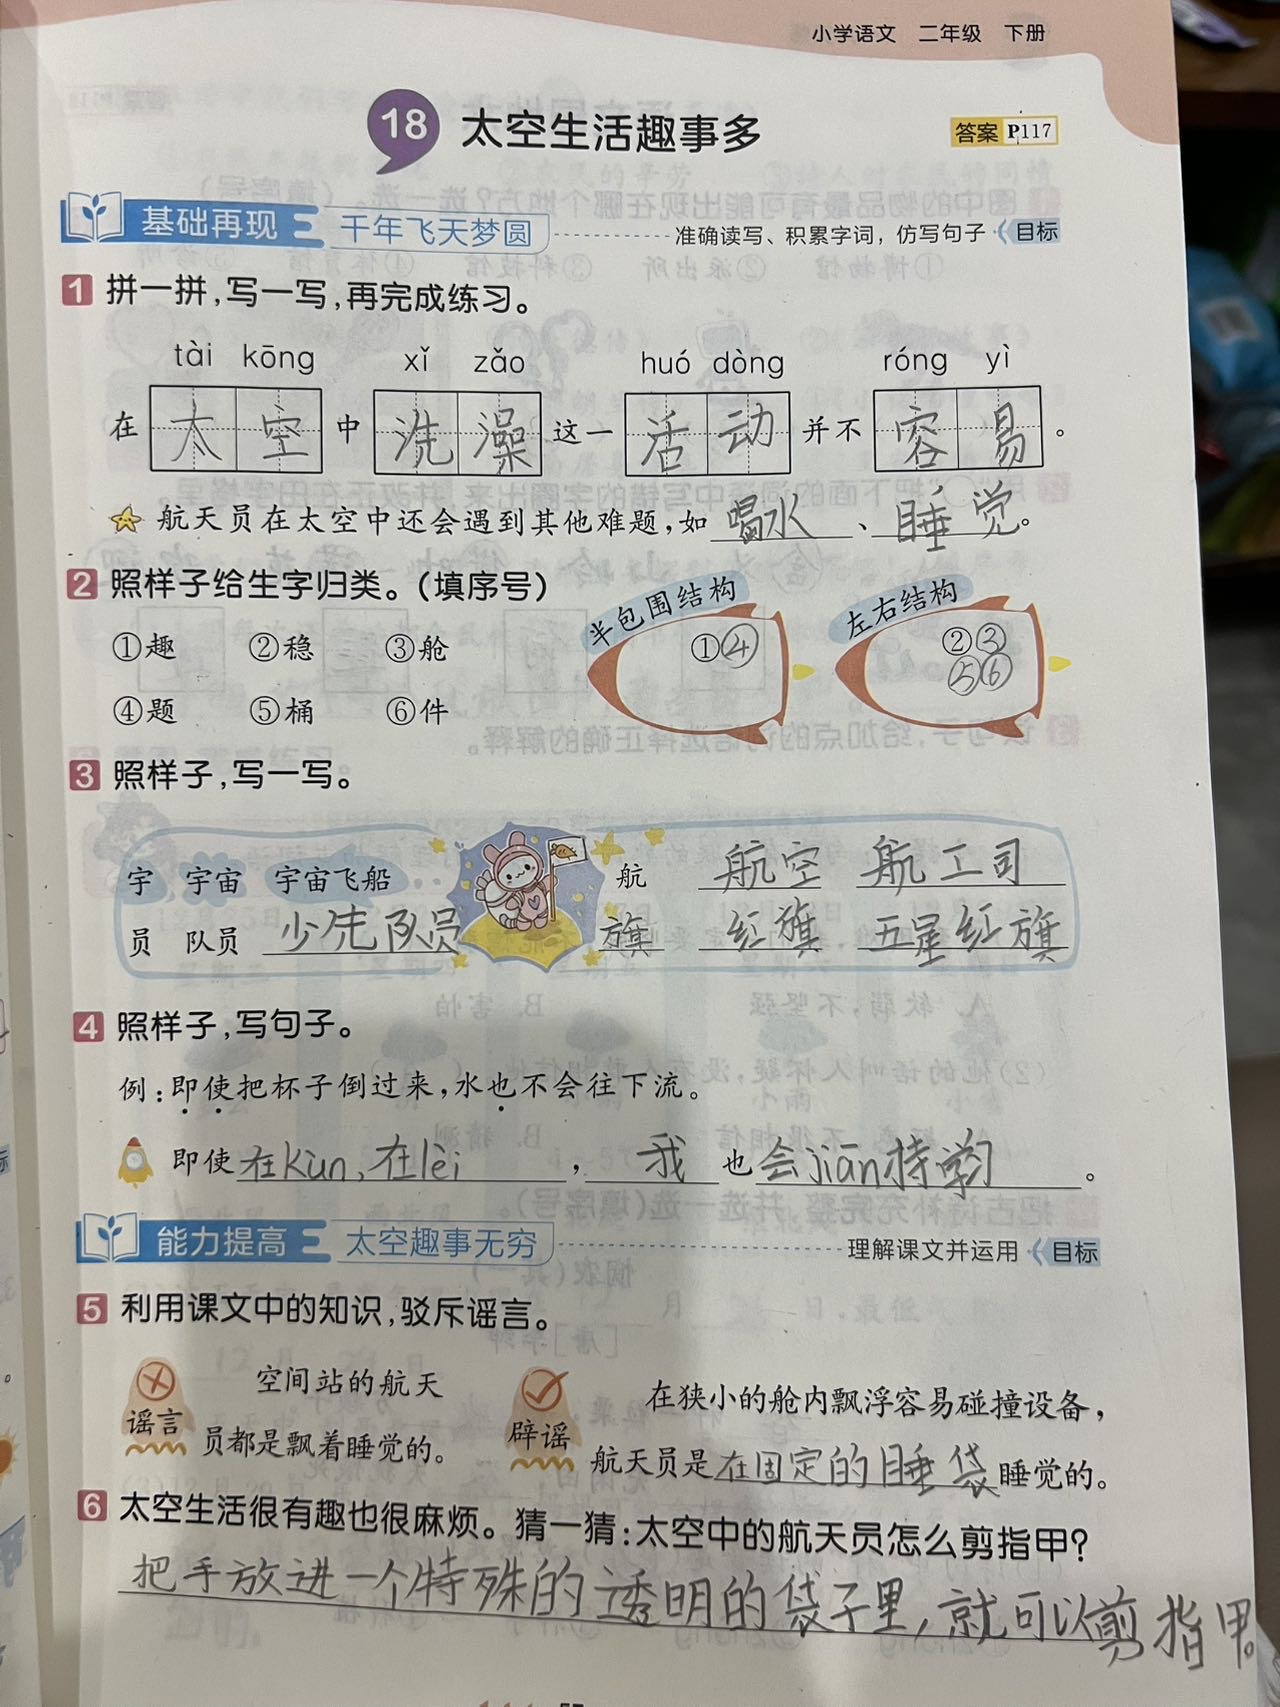 小学语文 二年级 下册
18 太空生活趣事多 答案P117
基础再现 千年飞天梦圆 准确读写、积累字词，仿写句子 目标
1 拼一拼，写一写，再完成练习。
tài kōng xǐ zǎo huó dòng róng yì
在太空中洗澡这一活动并不容易。
航天员在太空中还会遇到其他难题，如喝水、睡觉。
2 照样子给生字归类。（填序号） 半包围结构 左右结构
①趣 ②稳 ③舱 ①④ ②③
④题 ⑤桶 ⑥件 ⑤⑥
3 照样子，写一写。
宇 宇宙 宇宙飞船 航 航空 航工司
员 队员 少先队员 旗 红旗 五星红旗
4 照样子，写句子。
例：即使把杯子倒过来，水也不会往下流。
即使在kùn、在lèi，我也会jiān持学习。
能力提高 太空趣事无穷 理解课文并运用 目标
5 利用课文中的知识，驳斥谣言。
谣言 空间站的航天
员都是飘着睡觉的。
辟谣 在狭小的舱内飘浮容易碰撞设备，
航天员是在固定的睡袋睡觉的。
6 太空生活很有趣也很麻烦。猜一猜：太空中的航天员怎么剪指甲？
把手放进一个特殊的透明的袋子里，就可以剪指甲。